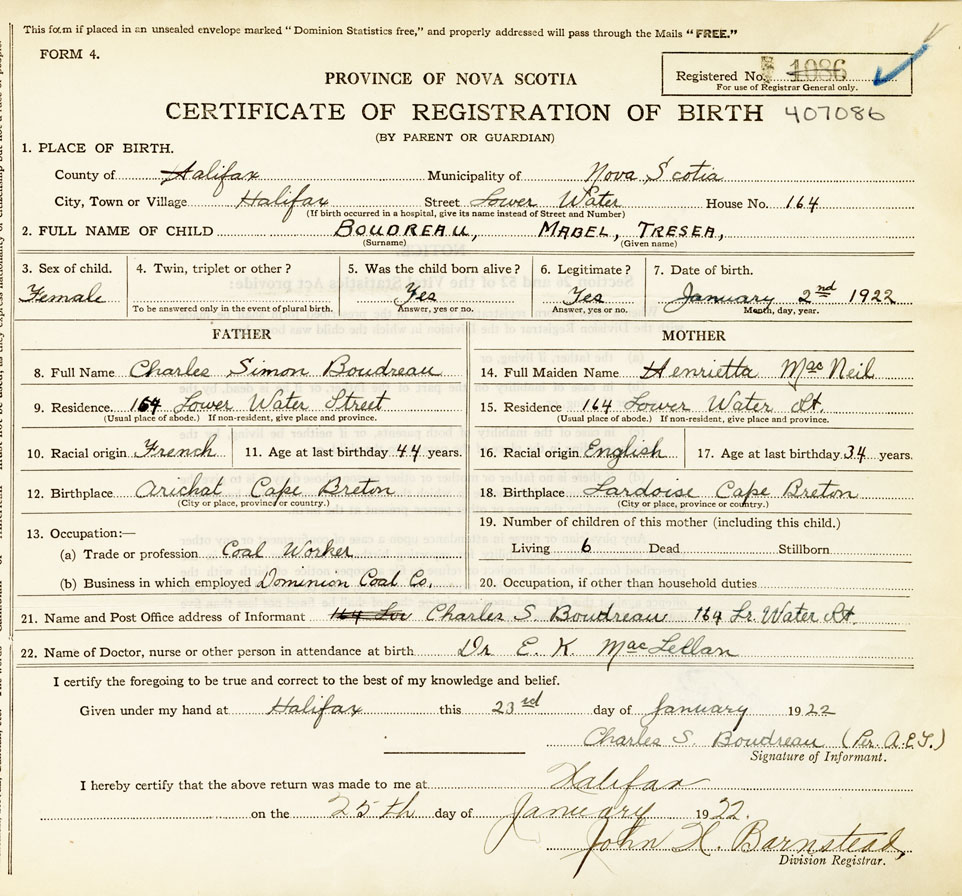 This form if placed in an unsealed envelope marked "Dominion Statistics free," and properly addressed will pass through the Mails "FREE."
FORM 4.
Registered No. 1086
For use of Registrar General only.
PROVINCE OF NOVA SCOTIA
CERTIFICATE OF REGISTRATION OF BIRTH 407086
(BY PARENT OR GUARDIAN)
1. PLACE OF BIRTH.
County of Halifax Municipality of Nova Scotia
City, Town or Village Halifax Street Lower Water House No. 164
(If birth occurred in a hospital, give its name instead of Street and Number)
2. FULL NAME OF CHILD BOUDREAU, MABEL, TRESEA,
(Surname) (Given name)
3. Sex of child. 4. Twin, triplet or other? 5. Was the child born alive? 6. Legitimate? 7. Date of birth.
Female Yes Yes January 2nd 1922
To be answered only in the event of plural birth. Answer, yes or no. Answer, yes or no. Month, day, year.
FATHER MOTHER
8. Full Name Charles Simon Boudreau 14. Full Maiden Name Henrietta MacNeil
9. Residence. 164 Lower Water Street 15. Residence 164 Lower Water St.
(Usual place of abode.) If non-resident, give place and province. (Usual place of abode.) If non-resident, give place and province.
10. Racial origin French 11. Age at last birthday 44 years. 16. Racial origin English 17. Age at last birthday 34 years.
12. Birthplace Arichat Cape Breton 18. Birthplace Lardoise Cape Breton
(City or place, province or country.) (City or place, province or country.)
13. Occupation:— 19. Number of children of this mother (including this child.)
(a) Trade or profession Coal Worker Living 6 Dead Stillborn
(b) Business in which employed Dominion Coal Co. 20. Occupation, if other than household duties
21. Name and Post Office address of Informant 164 Lor Charles S. Boudreau 164 Lr. Water St.
22. Name of Doctor, nurse or other person in attendance at birth Dr E. K. MacLellan
I certify the foregoing to be true and correct to the best of my knowledge and belief.
Given under my hand at Halifax this 23rd day of January 1922
Charles S. Boudreau (Per. A.E.T.)
Signature of Informant.
I hereby certify that the above return was made to me at Halifax
on the 25th day of January 1922.
John H. Barnstead,
Division Registrar.